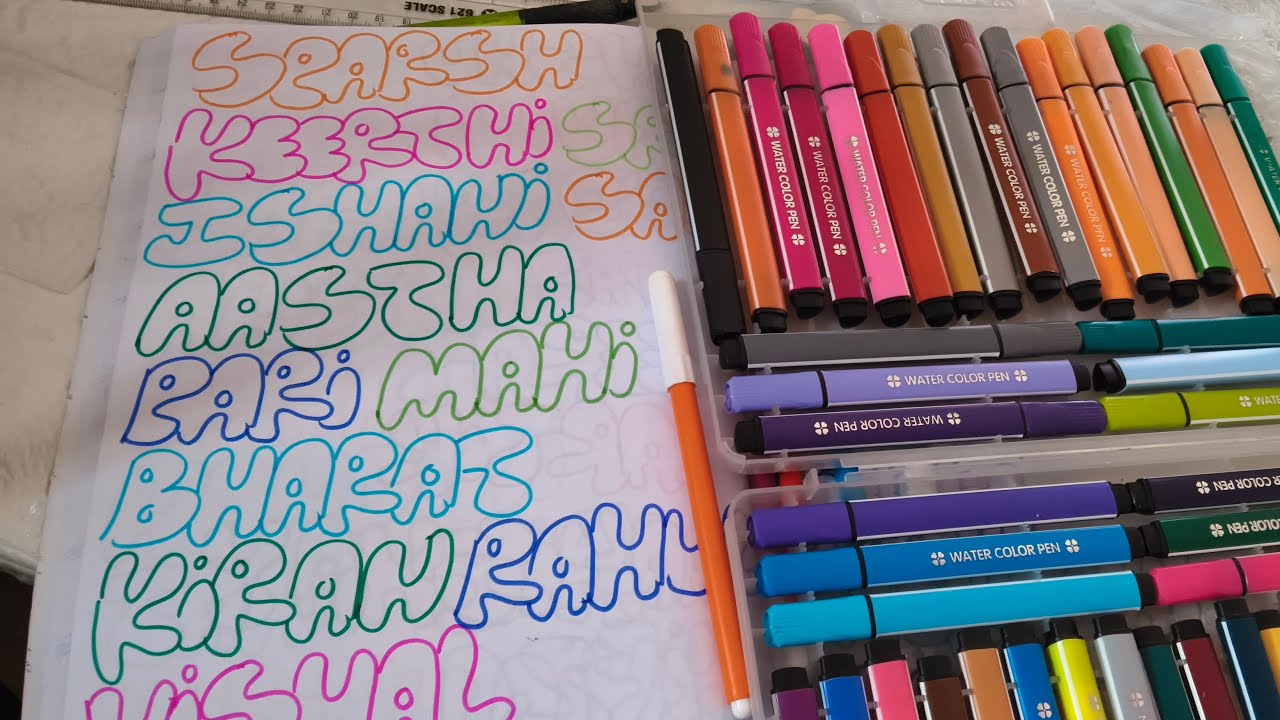 621 SCALE
SPARSH
KEERTHi SA
ISHANi SA
AASTHA
PARi MAHi
BHARAT
KiRAN RAHU
VISHAL
WATER COLOR PEN
WATER COLOR PEN
WATER COLOR PEN
WATER COLOR PEN
WATER COLOR PEN
WATER COLOR PEN
WATER COLOR PEN
WATER COLOR PEN WATER
WATER COLOR PEN WATER COLOR PEN
COLOR PEN
WATER COLOR PEN WATER